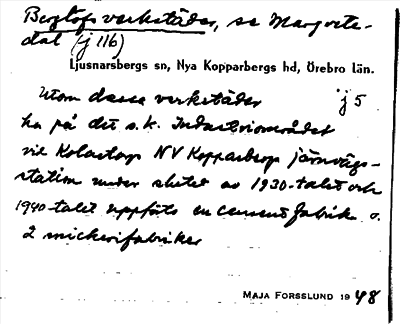 Bergtofs verkstäder, se Margrete-
dal (j 116)
Ljusnarsbergs sn, Nya Kopparbergs hd, Örebro län.
Utom dessa verkstäder j 5
ha på det s.k. Industriområdet
vid Kolastorp NV Kopparbergs järnvägs-
station under slutet av 1930-talet och
1940-talet uppförts en cementfabrik o.
2 snickerifabriker
MAJA FORSSLUND 1948